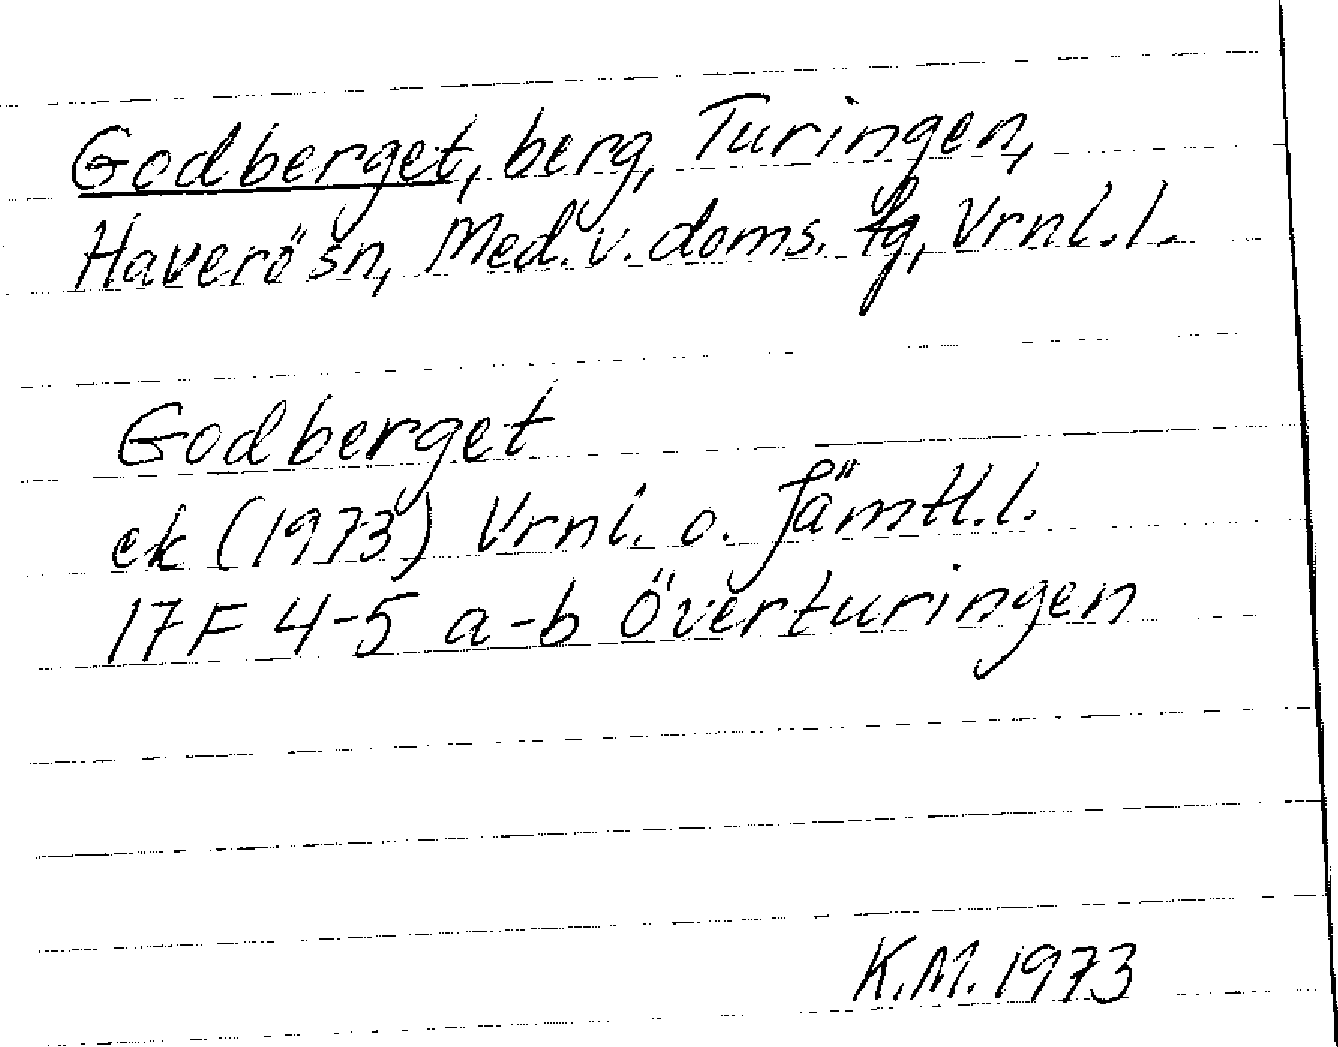 Godberget, berg, Turingen,
Haverö sn, Med. v. doms. fg, Vrnl. l.
Godberget
ek (1973) Vrnl. o. Jämtl. l.
17F 4-5 a-b Överturingen
K.M. 1973